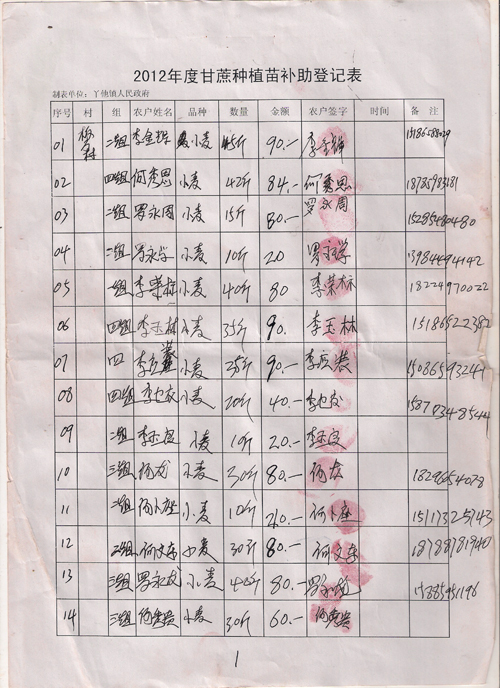 2012年度甘蔗种植苗补助登记表
制表单位：丫他镇人民政府
序号 村 组 农户姓名 品种 数量 金额 农户签字 时间 备注
01 二组 李金 小麦 45斤 90.-
02 四组 何秀恩 小麦 42斤 84.- 何秀恩 18785983181
03 二组 罗永周 小麦 15斤 80.- 罗永周 15285480480
04 二组 罗永学 小麦 10斤 20 罗永学 13984494142
05 一组 李荣标 小麦 40斤 80 李荣标 18224970022
06 四组 李玉林 小麦 35斤 90. 李玉林 15186522382
07 四 小麦 35斤 90.- 15086593241
08 四组 小麦 20斤 40.- 15870348544
09 二组 小麦 10斤 20.-
10 三组 何龙 小麦 30斤 80.- 何龙 18296654078
11 二组 小麦 10斤 20.- 15117325743
12 二组 何文东 小麦 30斤 80.- 何文东 18788781940
13 三组 罗永 小麦 40斤 80.- 罗永 15385951196
14 三组 小麦 30斤 60.-
1